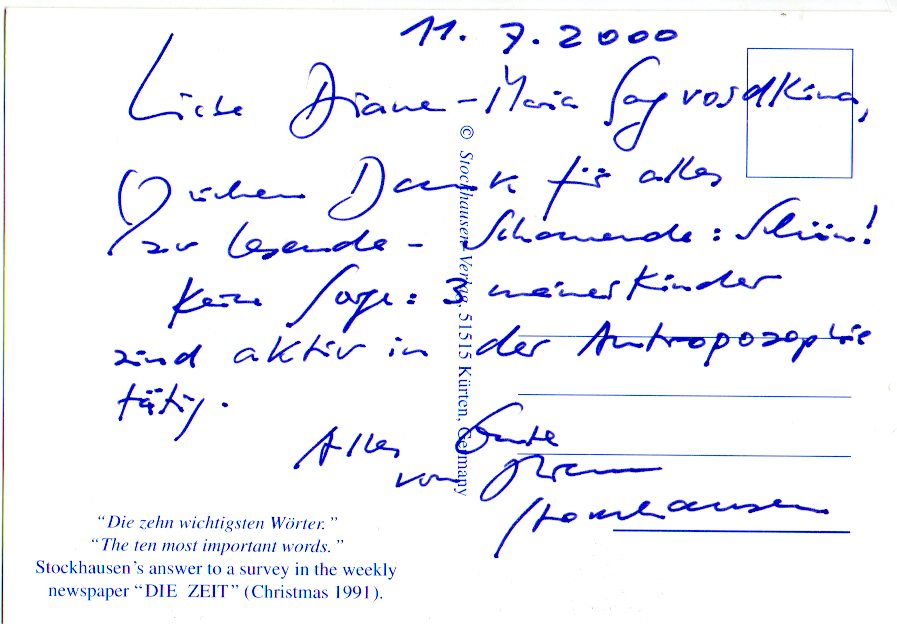 11. 7. 2000
Liebe Diane-Maria
Dank für alles
zu Lesende - Schauende: Schön!
Keine Sorge: 3 meiner Kinder
sind aktiv in der Antroposophie
tätig.
Alles Gute
von
Stockhausen
© Stockhausen Verlag, 51515 Kürten, Germany
“Die zehn wichtigsten Wörter.”
“The ten most important words.”
Stockhausen's answer to a survey in the weekly
newspaper “DIE ZEIT” (Christmas 1991).